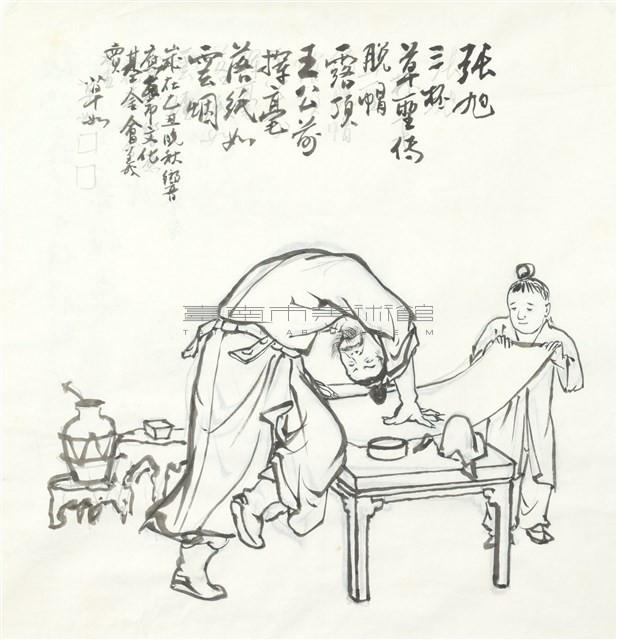 張旭
三杯
草聖傳
脫帽
露頂
王公前
揮毫
落紙如
雲烟
歲在乙丑晚秋響
應臺南市文化
基金會義
賣
草如
臺南市美術館
TAINAN ART MUSEUM